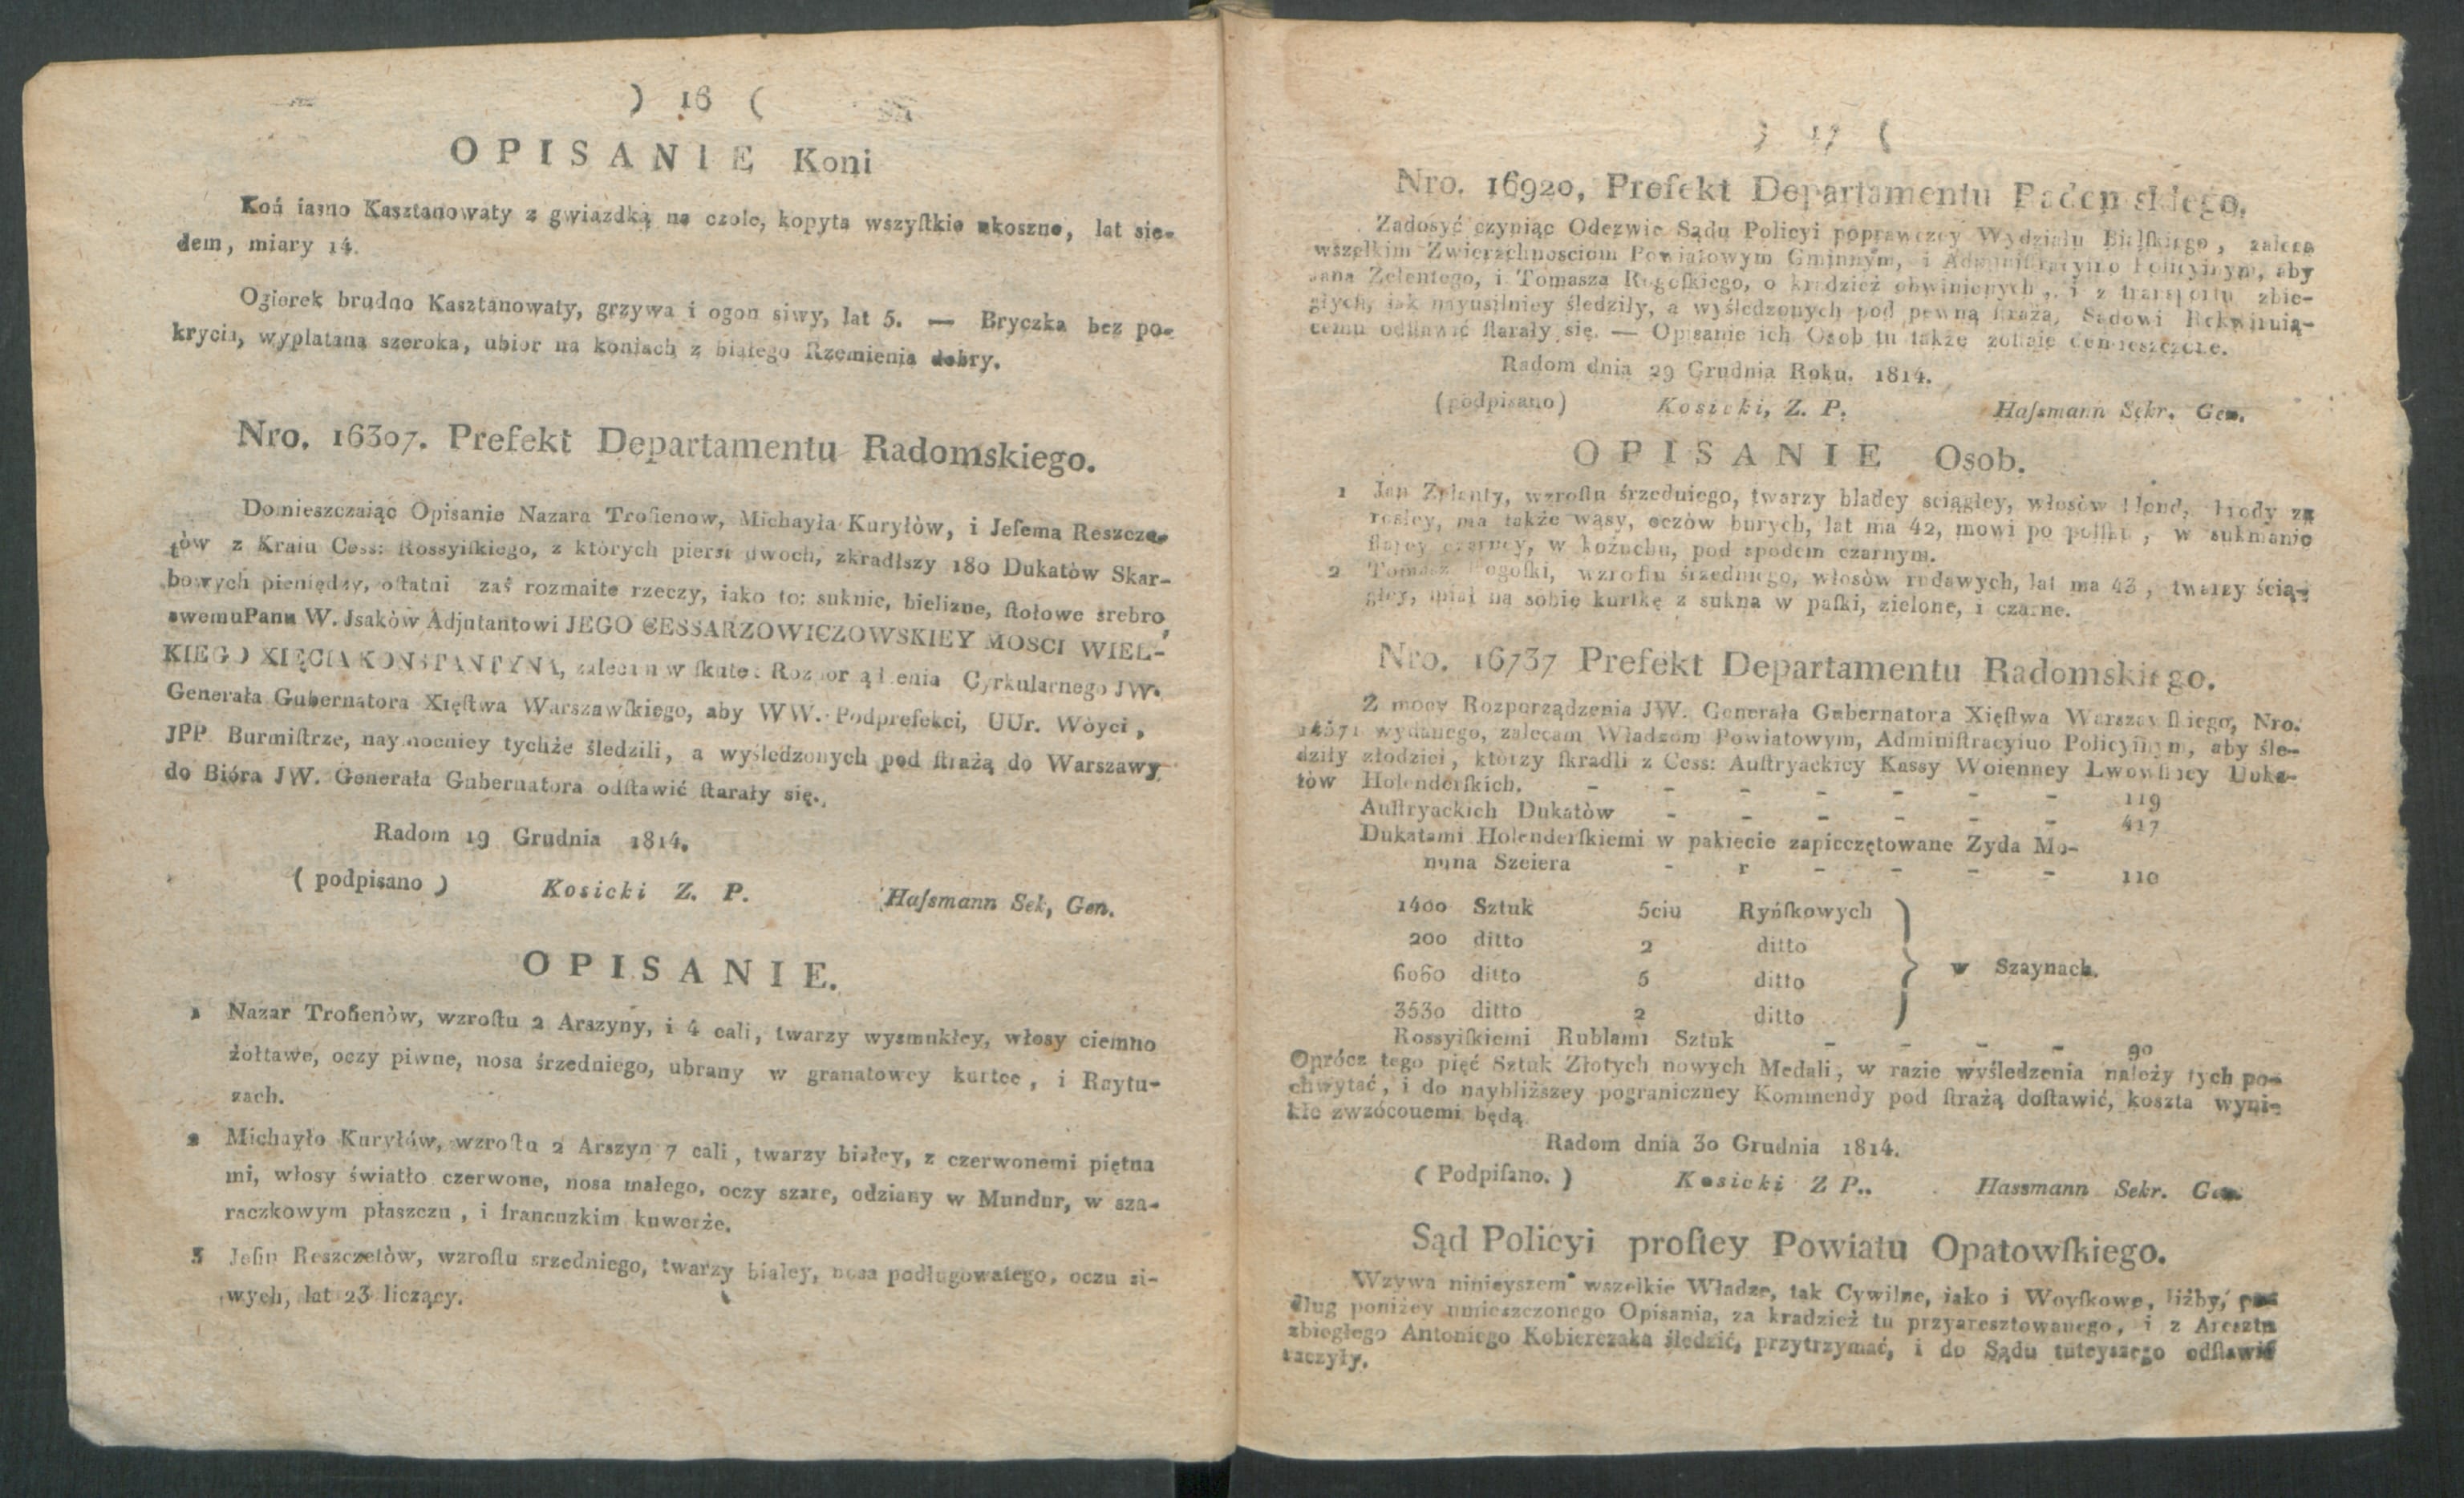 ) 16 (
OPISANIE Koni
Koń iasno Kasztanowaty z gwiazdką na czole, kopyta wszyſtkie ukoszne, lat sie-
dem, miary 14.
Ogierek brudno Kasztanowaty, grzywa i ogon siwy, lat 5. — Bryczka bez po-
krycia, wyplatana szeroka, ubior na koniach z białego Rzemienia dobry.
Nro. 16307. Prefekt Departamentu Radomskiego.
Domieszczaiąc Opisanie Nazara Trofienow, Michayła Kuryłòw, i Jeſema Reszcze-
tòw z Kraiu Cess: Rossyiſkiego, z których piersi dwoch, zkradſszy 180 Dukatòw Skar-
bowych pieniędzy, oſtatni zaś rozmaite rzeczy, iako to: suknie, bielizne, ſtołowe srebro,
swemu Panu W. Jsaków Adjutantowi JEGO CESSARZOWICZOWSKIEY MOSCI WIEL-
KIEGO XIĘCIA KONSTANTYNA, zalecam w ſkutek Rozporządzenia Cyrkularnego JW.
Generała Gubernatora Xięſtwa Warszawſkiego, aby WW. Podprefekci, UUr. Wòyci,
JPP. Burmiſtrze, naymocniey tychże śledzili, a wyśledzonych pod ſtrażą do Warszawy
do Bióra JW. Generała Gubernatora odſtawić ſtarały się.
Radom 19 Grudnia 1814.
( podpisano ) Kosicki Z. P. Haſsmann Sek, Gen.
OPISANIE.
1 Nazar Trofienòw, wzroſtu 2 Arszyny, i 4 cali, twarzy wysmukłey, włosy ciemno
żołtawe, oczy piwne, nosa śrzedniego, ubrany w granatowey kurtce, i Raytu-
zach.
2 Michayło Kuryłów, wzroſtu 2 Arszyn 7 cali, twarzy białey, z czerwonemi piętna
mi, włosy światło czerwone, nosa małego, oczy szare, odziany w Mundur, w sza-
raczkowym płaszczu, i francuzkim kuwerże.
3 Jeſin Reszczetòw, wzroſtu srzedniego, twarzy bialey, nosa podługowatego, oczu si-
wych, lat 23 liczący.
) 17 (
Nro. 16920, Prefekt Departamentu Radomskiego.
Zadosyć czyniąc Odezwie Sądu Policyi poprawczey Wydziału Bielſkiego, zaleca
wszelkim Zwierzchnosciom Powiatowym Gminnym, i Adminiſtracyino Policyinym, aby
Jana Zelentego, i Tomasza Rogoſkiego, o kradzież obwinionych, i z transportu zbie-
głych, iak nayusilniey śledziły, a wyśledzonych pod pewną ſtraża, Sądowi Rekwiruią-
cemu odſtawić ſtarały się. — Opisanie ich Osob tu także zoſtaie
Radom dnia 29 Grudnia Roku. 1814.
(podpisano) Kosicki, Z. P. Haſsmann Sekr. Gen.
OPISANIE Osob.
1 Jan Zelenty, wzroſtu śrzedniego, twarzy bladey sciągłey, włosòw blond, brody za
rosłey, ma także wąsy, oczòw burych, lat ma 42, mowi po polſku, w sukmanie
ſtarey czarney, w kożuchu, pod spodem czarnym.
2 Tomasz Rogoſki, wzroſtu śrzedniego, włosòw rudawych, lat ma 43, twarzy ścią-
głey, miał na sobie kurtkę z sukna w paſki, zielone, i czarne.
Nro. 16737 Prefekt Departamentu Radomskiego.
Z mocy Rozporządzenia JW. Generała Gubernatora Xięſtwa Warszawſkiego, Nro.
14571 wydanego, zalecam Władzom Powiatowym, Adminiſtracyino Policyinym, aby śle-
dziły złodziei, ktòrzy ſkradli z Cess: Auſtryackiey Kassy Woienney Lwowſkiey Duka-
tòw Holenderſkich. - - - - - - - 119
Auſtryackich Dukatòw - - - - - - 417
Dukatami Holenderſkiemi w pakiecie zapieczętowane Zyda Mo-
nuna Szeiera - r - - - - 110
1400 Sztuk 5ciu Ryńſkowych
200 ditto 2 ditto
6060 ditto 5 ditto
w Szaynach.
3530 ditto 2 ditto
Rossyiſkiemi Rublami Sztuk - - - - 90
Oprócz tego pięć Sztuk Złotych nowych Medali, w razie wyśledzenia należy tych po-
chwytać, i do naybliższey pograniczney Kommendy pod ſtrażą doſtawić, koszta wyni-
kłe zwzócouemi będą.
Radom dnia 30 Grudnia 1814.
( Podpiſano. ) Kosicki Z P.. Hassmann Sekr. Gen.
Sąd Policyi proſtey Powiatu Opatowſkiego.
Wzywa ninieyszem wszelkie Władze, tak Cywilne, iako i Woyſkowe, iiżby, po
dlug poniżey umieszczonego Opisania, za kradzież tu przyaresztowanego, i z Aresztu
zbiegłego Antoniego Kobierczaka śledzić, przytrzymać, i do Sądu tuteyszego odſtawić
raczyły.